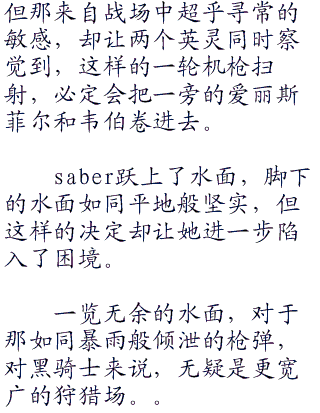 但那来自战场中超乎寻常的
敏感，却让两个英灵同时察
觉到，这样的一轮机枪扫
射，必定会把一旁的爱丽斯
菲尔和韦伯卷进去。
saber跃上了水面，脚下
的水面如同平地般坚实，但
这样的决定却让她进一步陷
入了困境。
一览无余的水面，对于
那如同暴雨般倾泄的枪弹，
对黑骑士来说，无疑是更宽
广的狩猎场。。